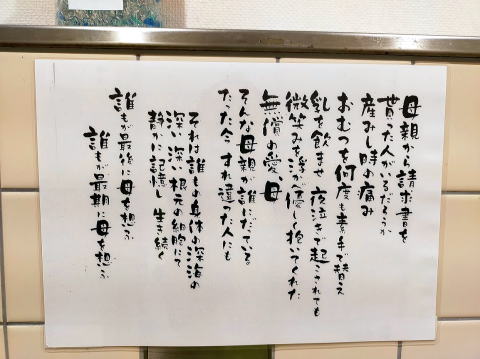 母親から請求書を
貰った人がいるだろうか
産みし時の痛み
おむつを何度も素手で替え
乳を飲ませ 夜泣きで起こされても
微笑みを浮べ優しく抱いてくれた
無償の愛 母
そんな母親が誰にだっている。
たった今 すれ違った人にも
それは誰もの身体の深海の
深い深い根元の細胞にて
静かに記憶し 生き続く
誰もが最後に母を想ふ
誰もが最期に母を想ふ